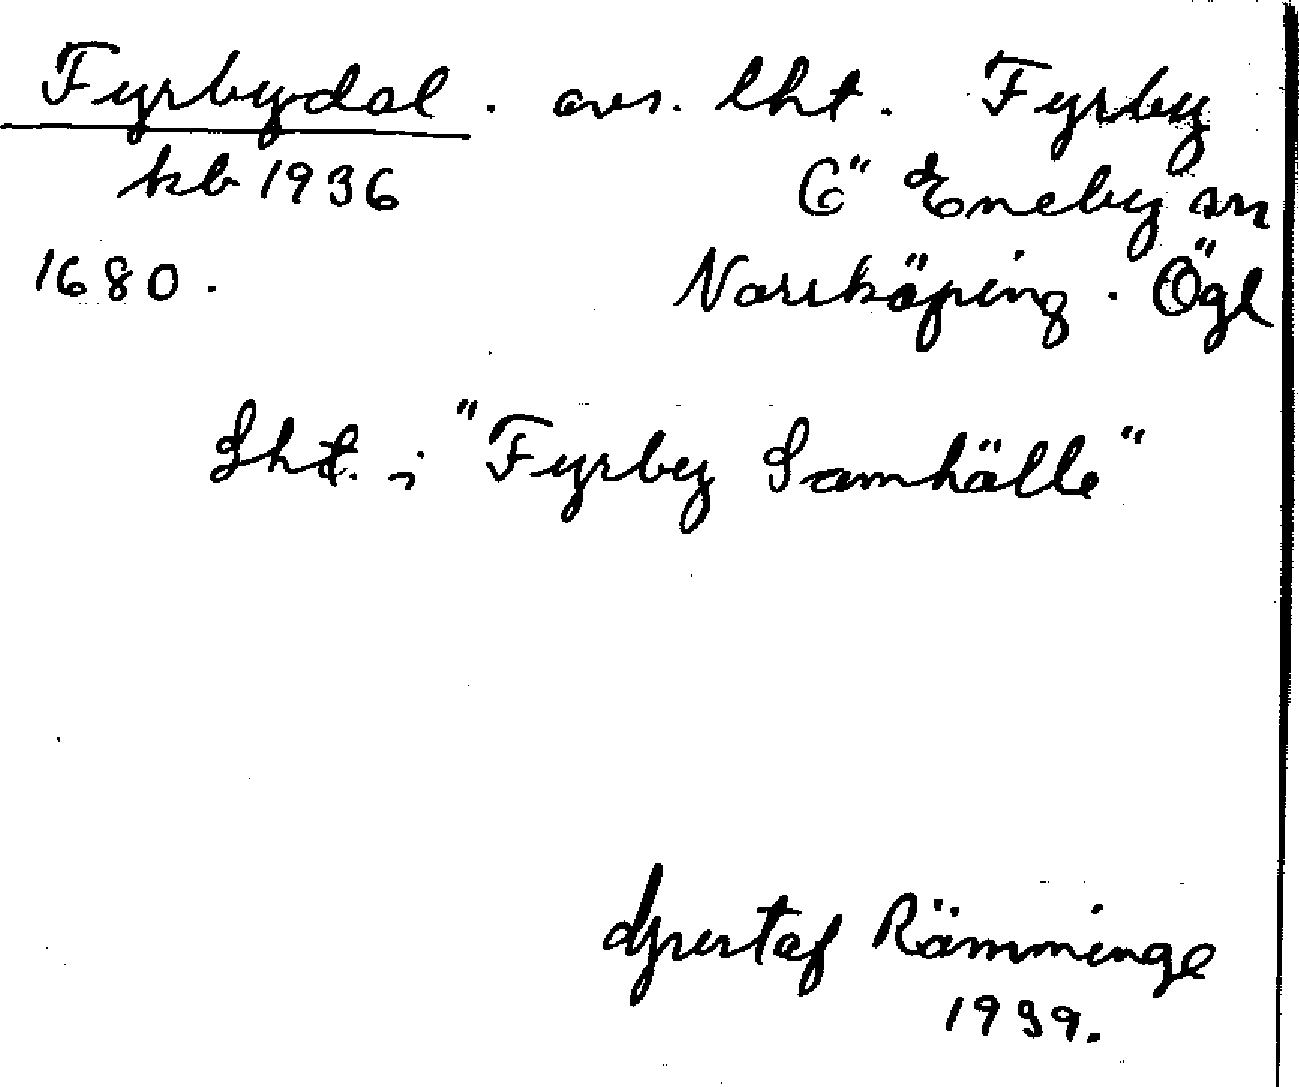 Fyrbydal. avs. lht. Fyrby
kb 1936 Ö Eneby sn
1680. Norrköping. Ögl
Lht. i "Fyrby Samhälle"
Gustaf Rämminge
1939.